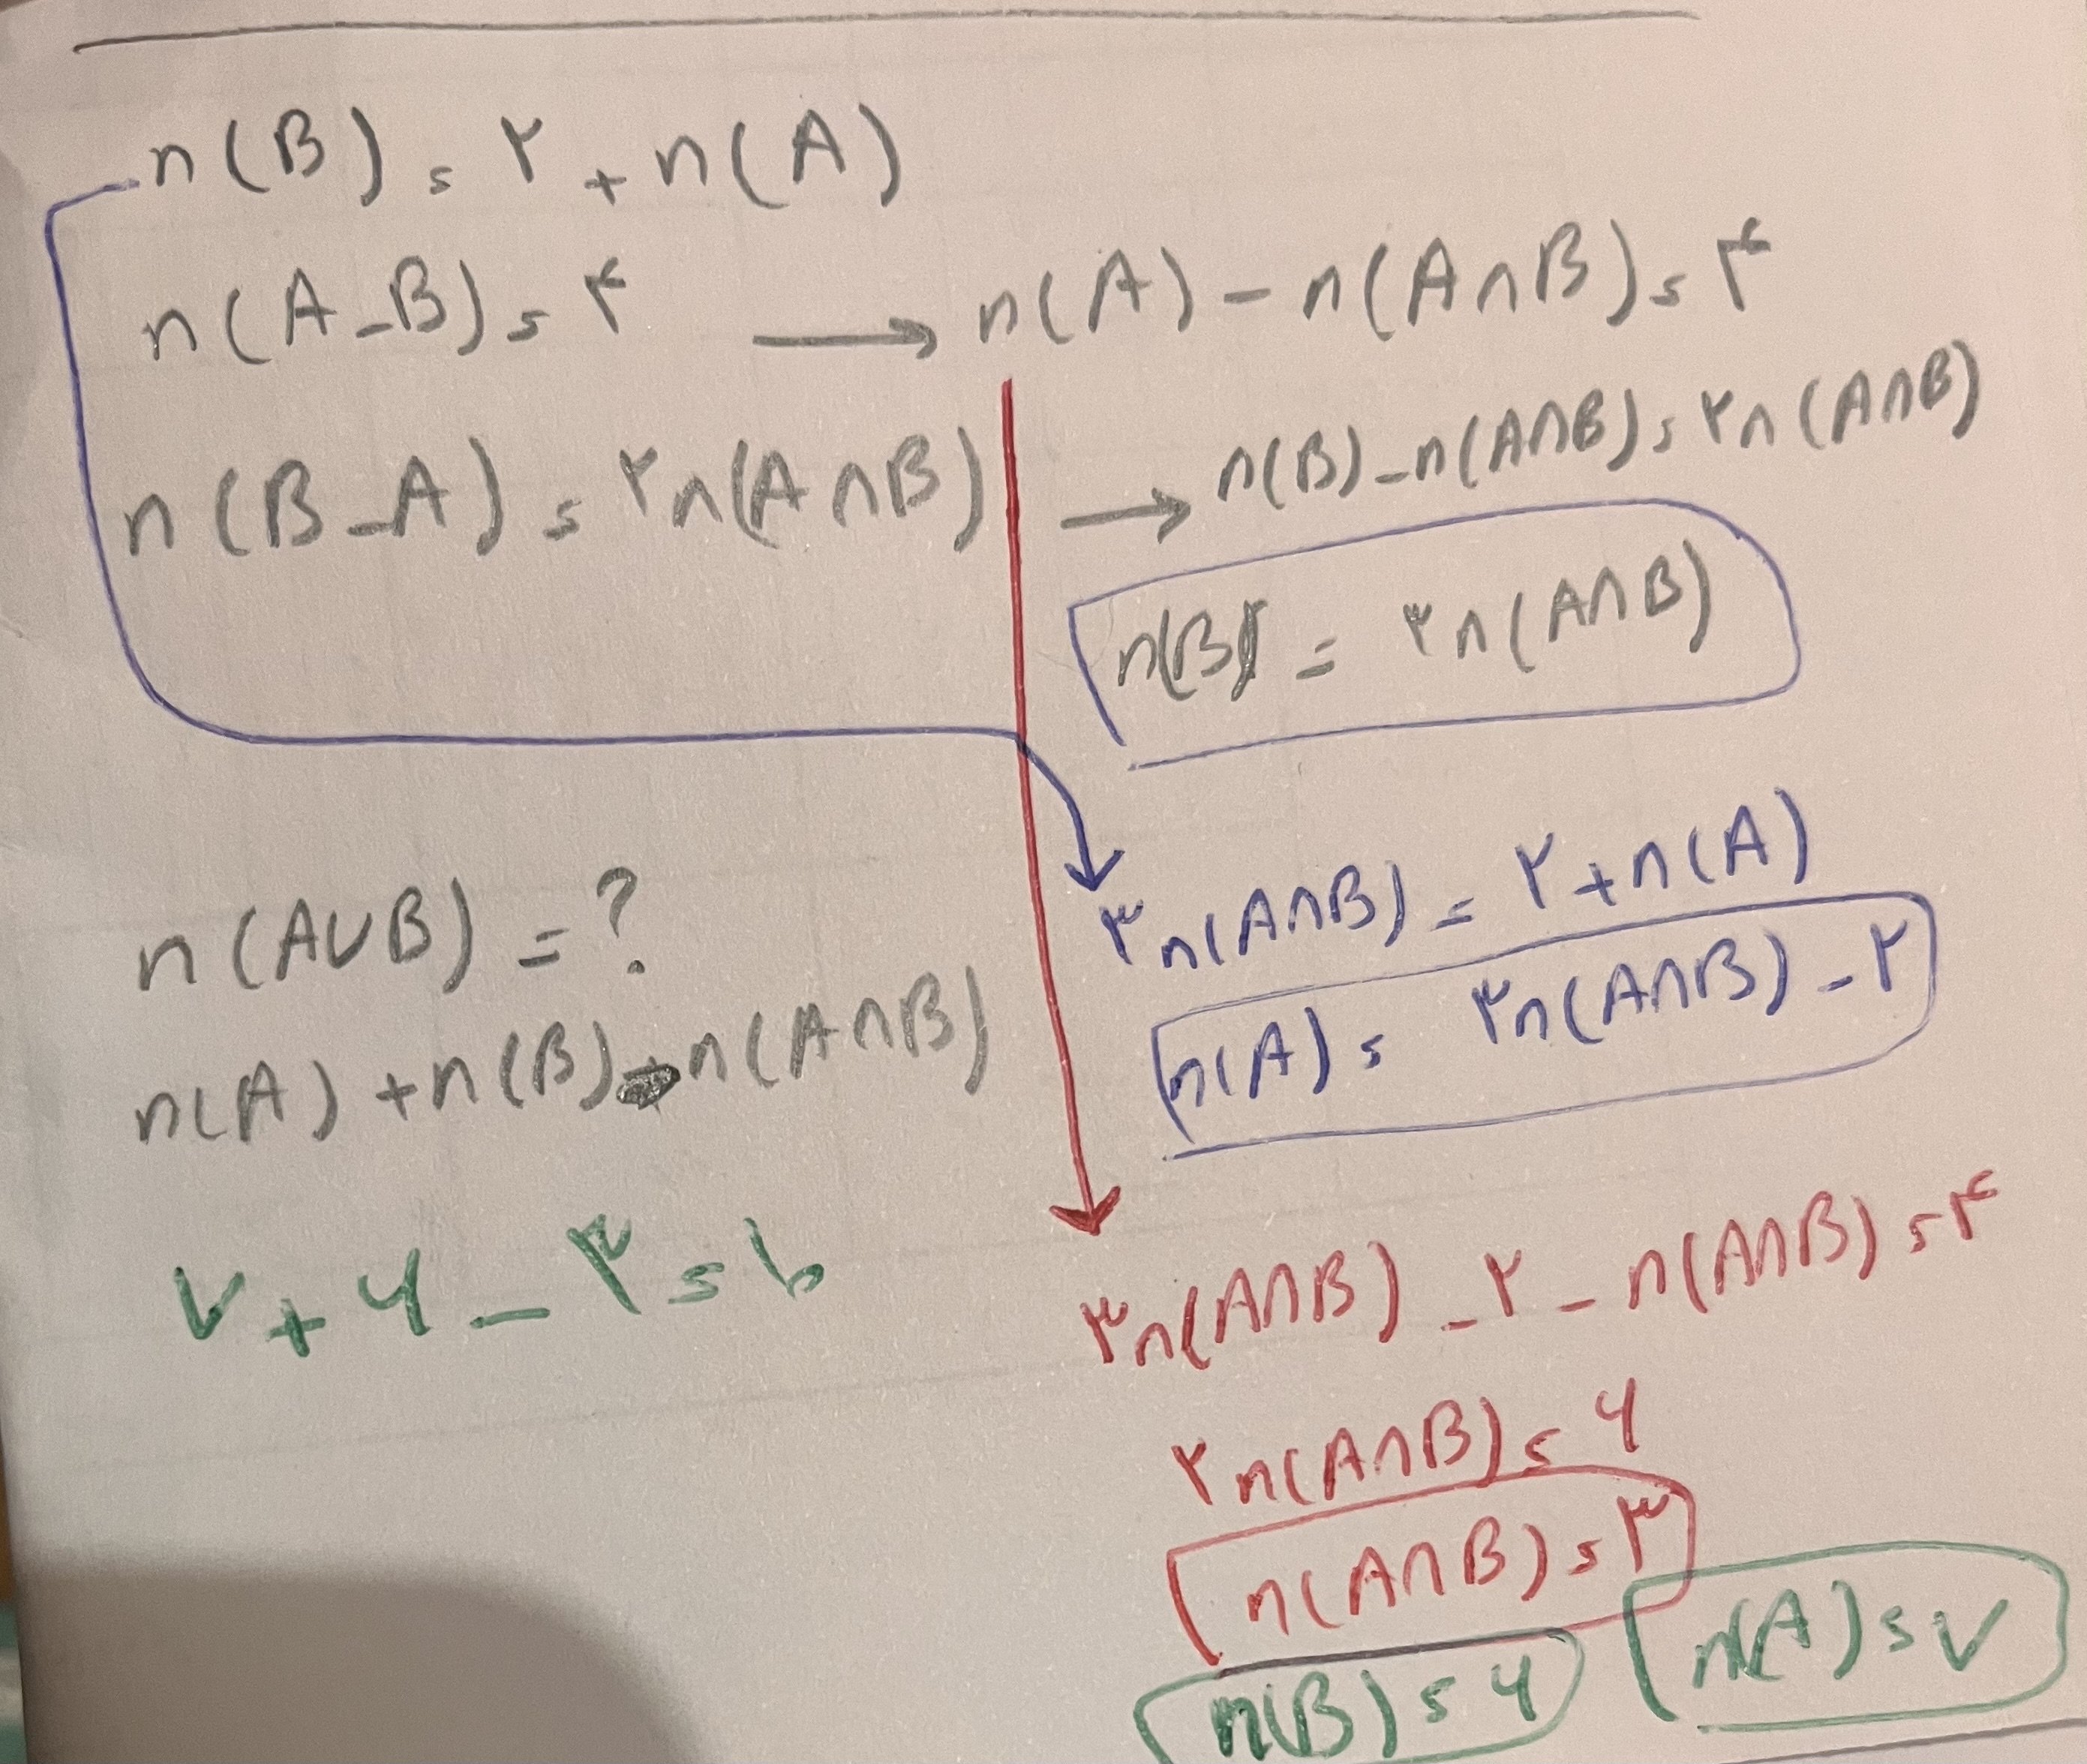 n(B) = ۲ + n(A)
n(A-B) = ۴ → n(A) - n(A∩B) = ۴
n(B-A) = ۲n(A∩B) → n(B) - n(A∩B) = ۲n(A∩B)
n(B) = ۳n(A∩B)
۳n(A∩B) = ۲ + n(A)
n(A) = ۳n(A∩B) - ۲
n(A∪B) = ?
n(A) + n(B) - n(A∩B)
۳n(A∩B) - ۲ - n(A∩B) = ۴
۲n(A∩B) = ۶
n(A∩B) = ۳
n(A) = ۷
n(B) = ۶
۷ + ۶ - ۳ = ۱۰